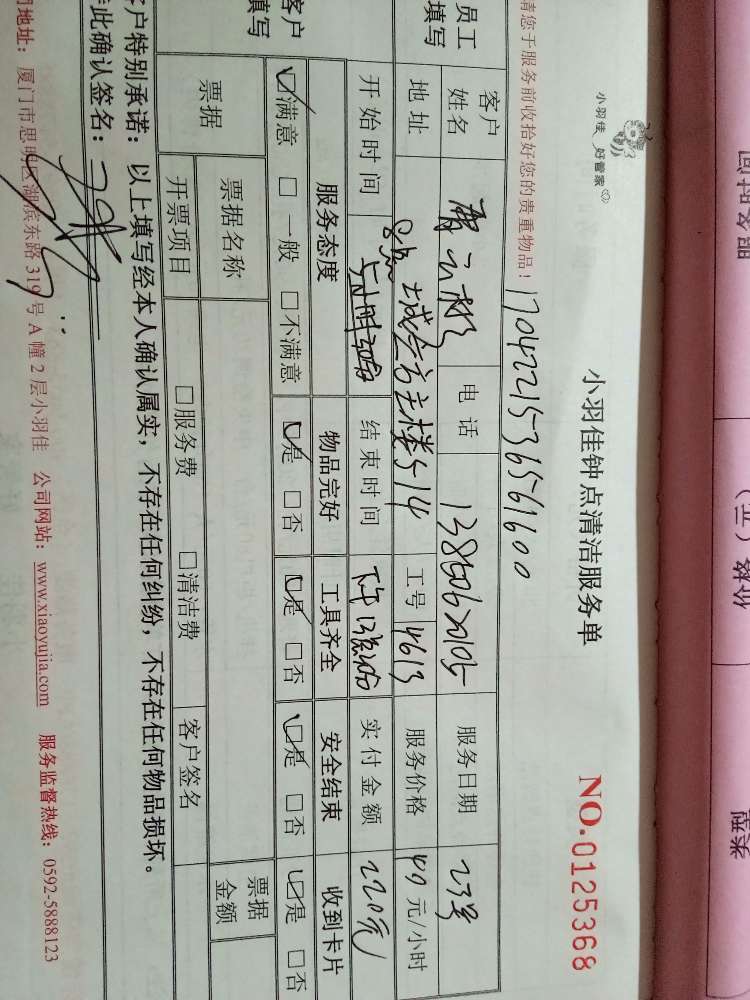 小羽佳 好管家
小羽佳钟点清洁服务单
NO.0125368
请您于服务前收拾好您的贵重物品！
17042215365616 00
员工 填写
客户 姓名 电话 13850620105 服务日期 23号
地址 主楼514 工号 4613 服务价格 40 元/小时
开始时间 结束时间 实付金额 220元
客户 填写
服务态度 物品完好 工具齐全 安全结束 收到卡片
☑满意 □一般 □不满意 ☑是 □否 ☑是 □否 ☑是 □否 ☑是 □否
票据 票据名称 票据 金额
开票项目 □服务费 □清洁费 客户签名
客户特别承诺：以上填写经本人确认属实，不存在任何纠纷，不存在任何物品损坏。
此确认签名：
地址：厦门市思明区湖滨东路 319 号 A 幢 2 层小羽佳 公司网站：www.xiaoyujia.com 服务监督热线：0592-5888123